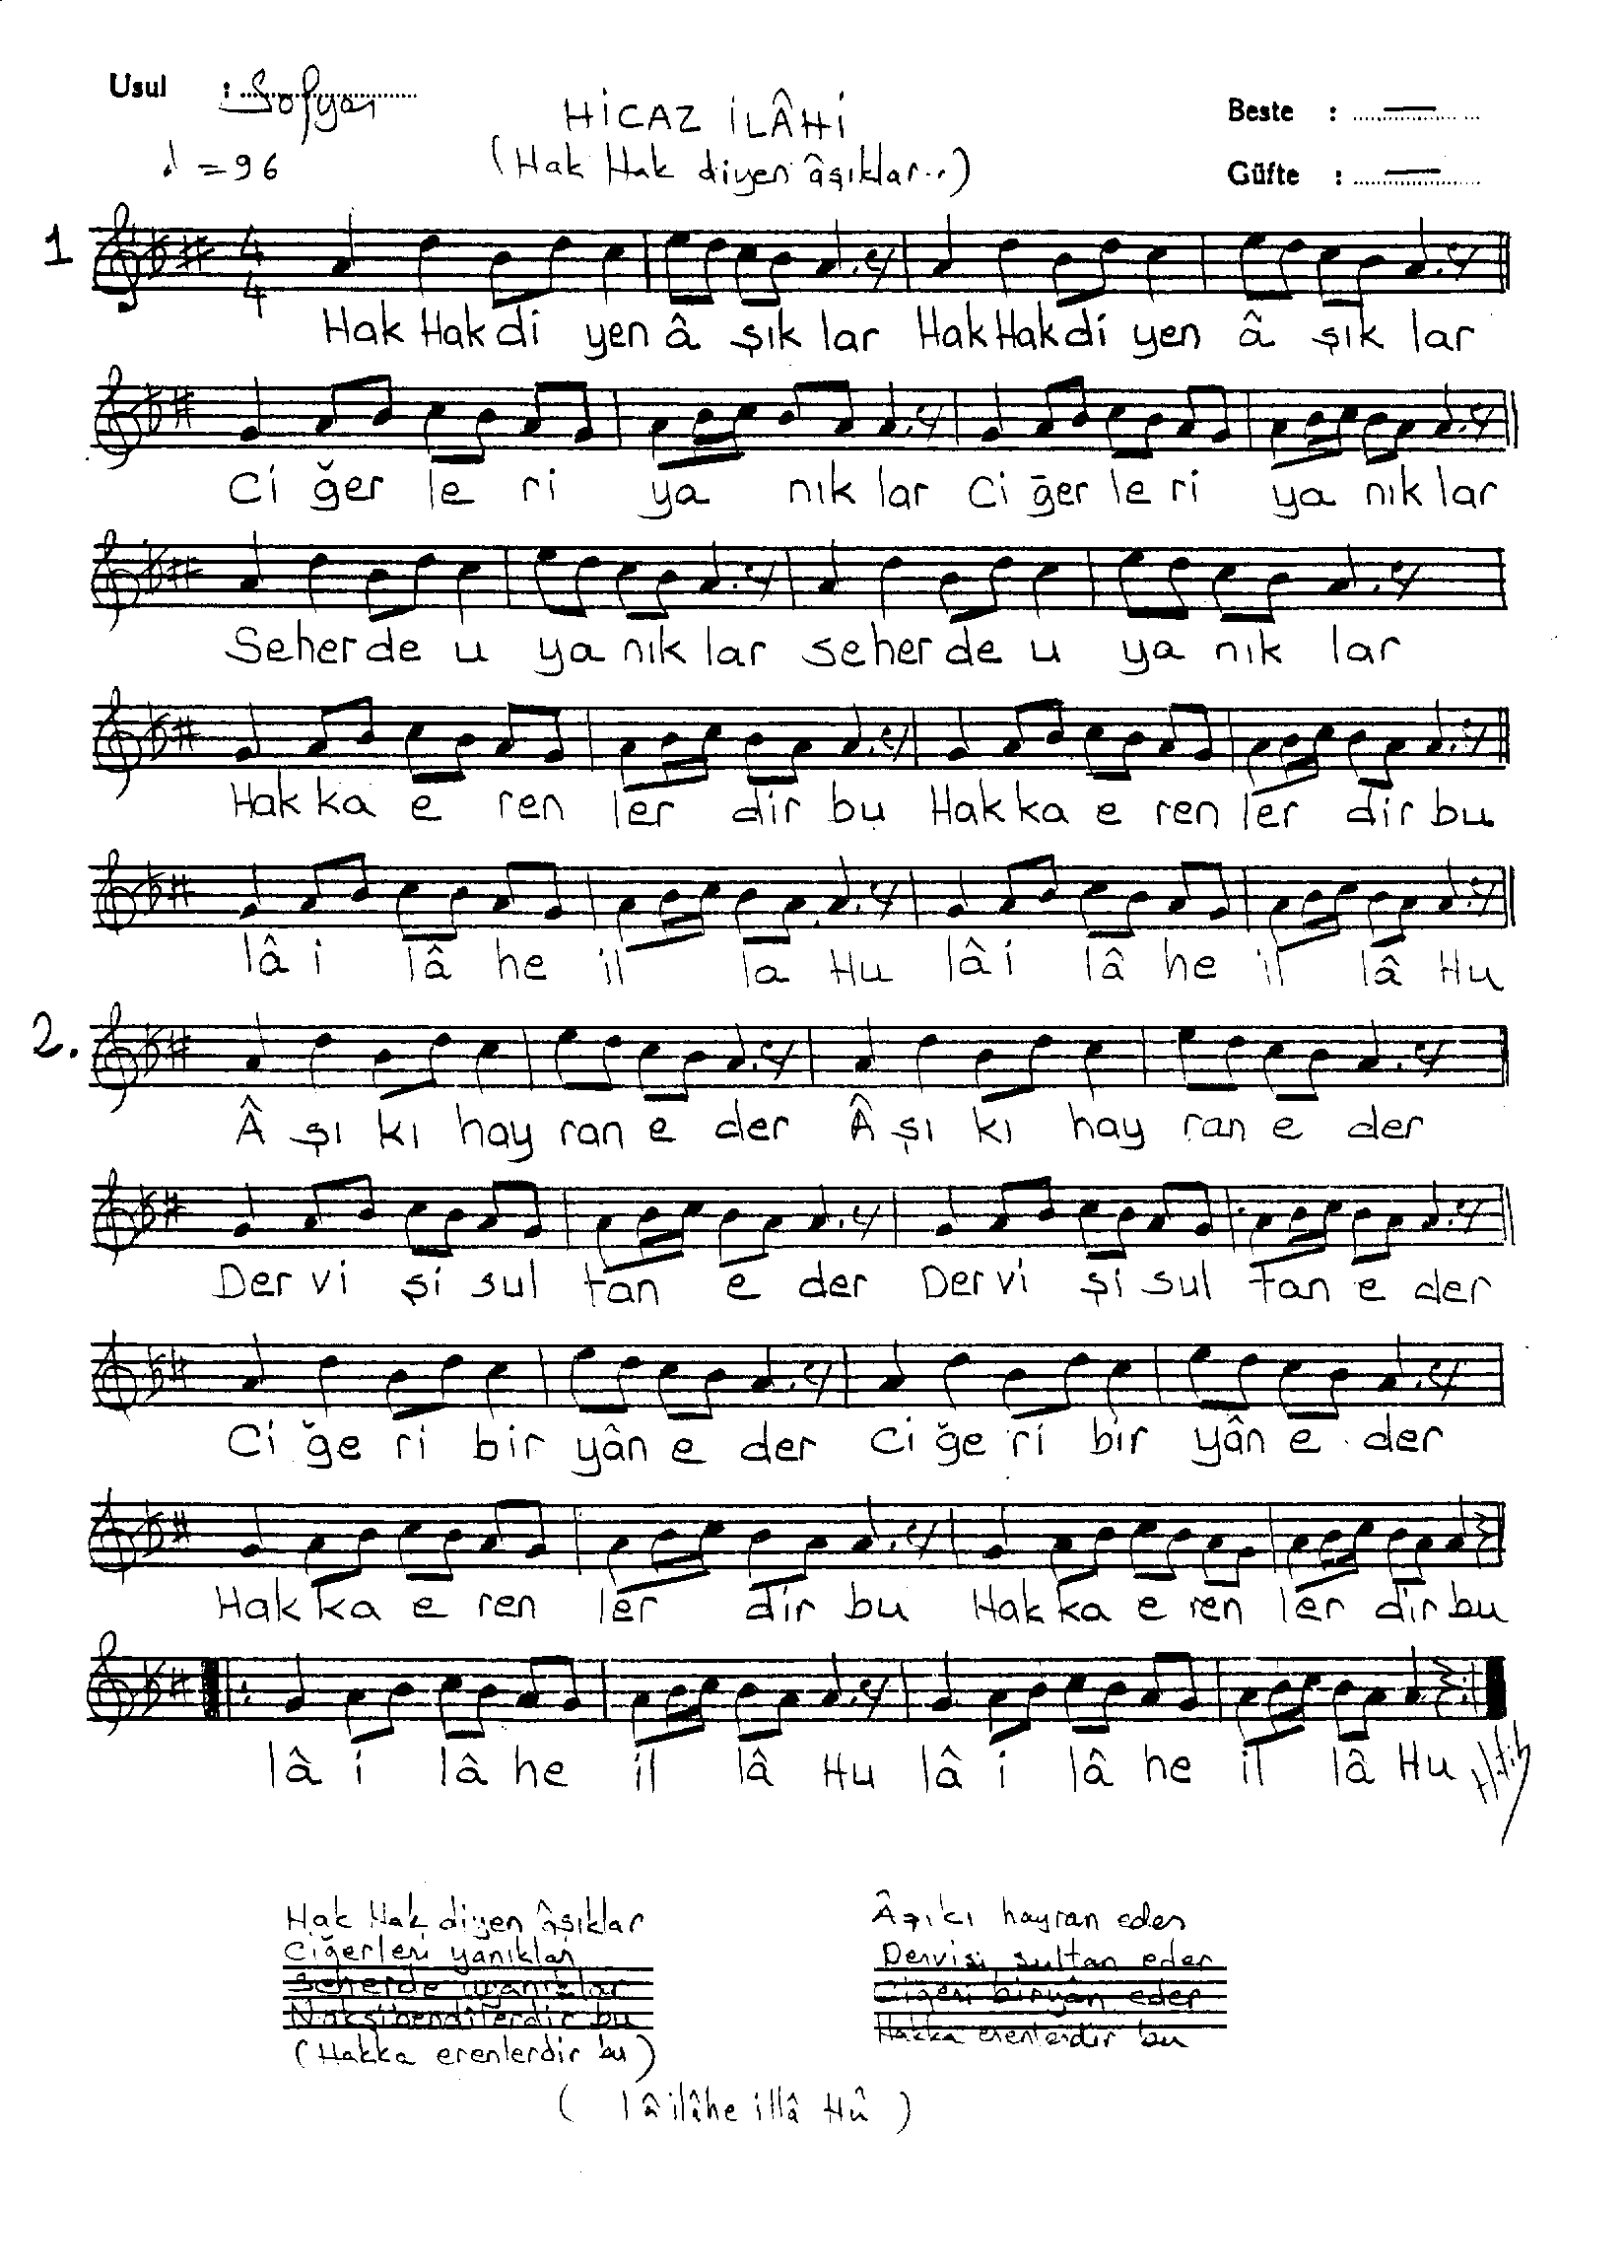 Usul : Sofyan
HİCAZ İLÂHİ
Beste : —
♩ = 96
(Hak Hak diyen âşıklar..)
Güfte : —
1
4
4
Hak Hak di yen â şık lar Hak Hak di yen â şık lar
Ci ğer le ri ya nık lar Ci ğer le ri ya nık lar
Seher de u ya nık lar seher de u ya nık lar
Hak ka e ren ler dir bu Hak ka e ren ler dir bu
lâ i lâ he il la Hu lâ i lâ he il lâ Hu
2.
 şı kı hay ran e der  şı kı hay ran e der
Der vi şi sul tan e der Der vi şi sul tan e der
Ci ğe ri bir yân e der Ci ğe ri bir yân e der
Hak ka e ren ler dir bu Hak ka e ren ler dir bu
lâ i lâ he il lâ Hu lâ i lâ he il lâ Hu
Hak Hak diyen âşıklar
Ciğerleri yanıklar
Seherde uyanıklar
Nakşibendîlerdir bu
(Hakka erenlerdir bu)
Âşıkı hayran eder
Dervişi sultan eder
Ciğeri biryân eder
Hakka erenlerdir bu
( lâ ilâhe illâ Hû )